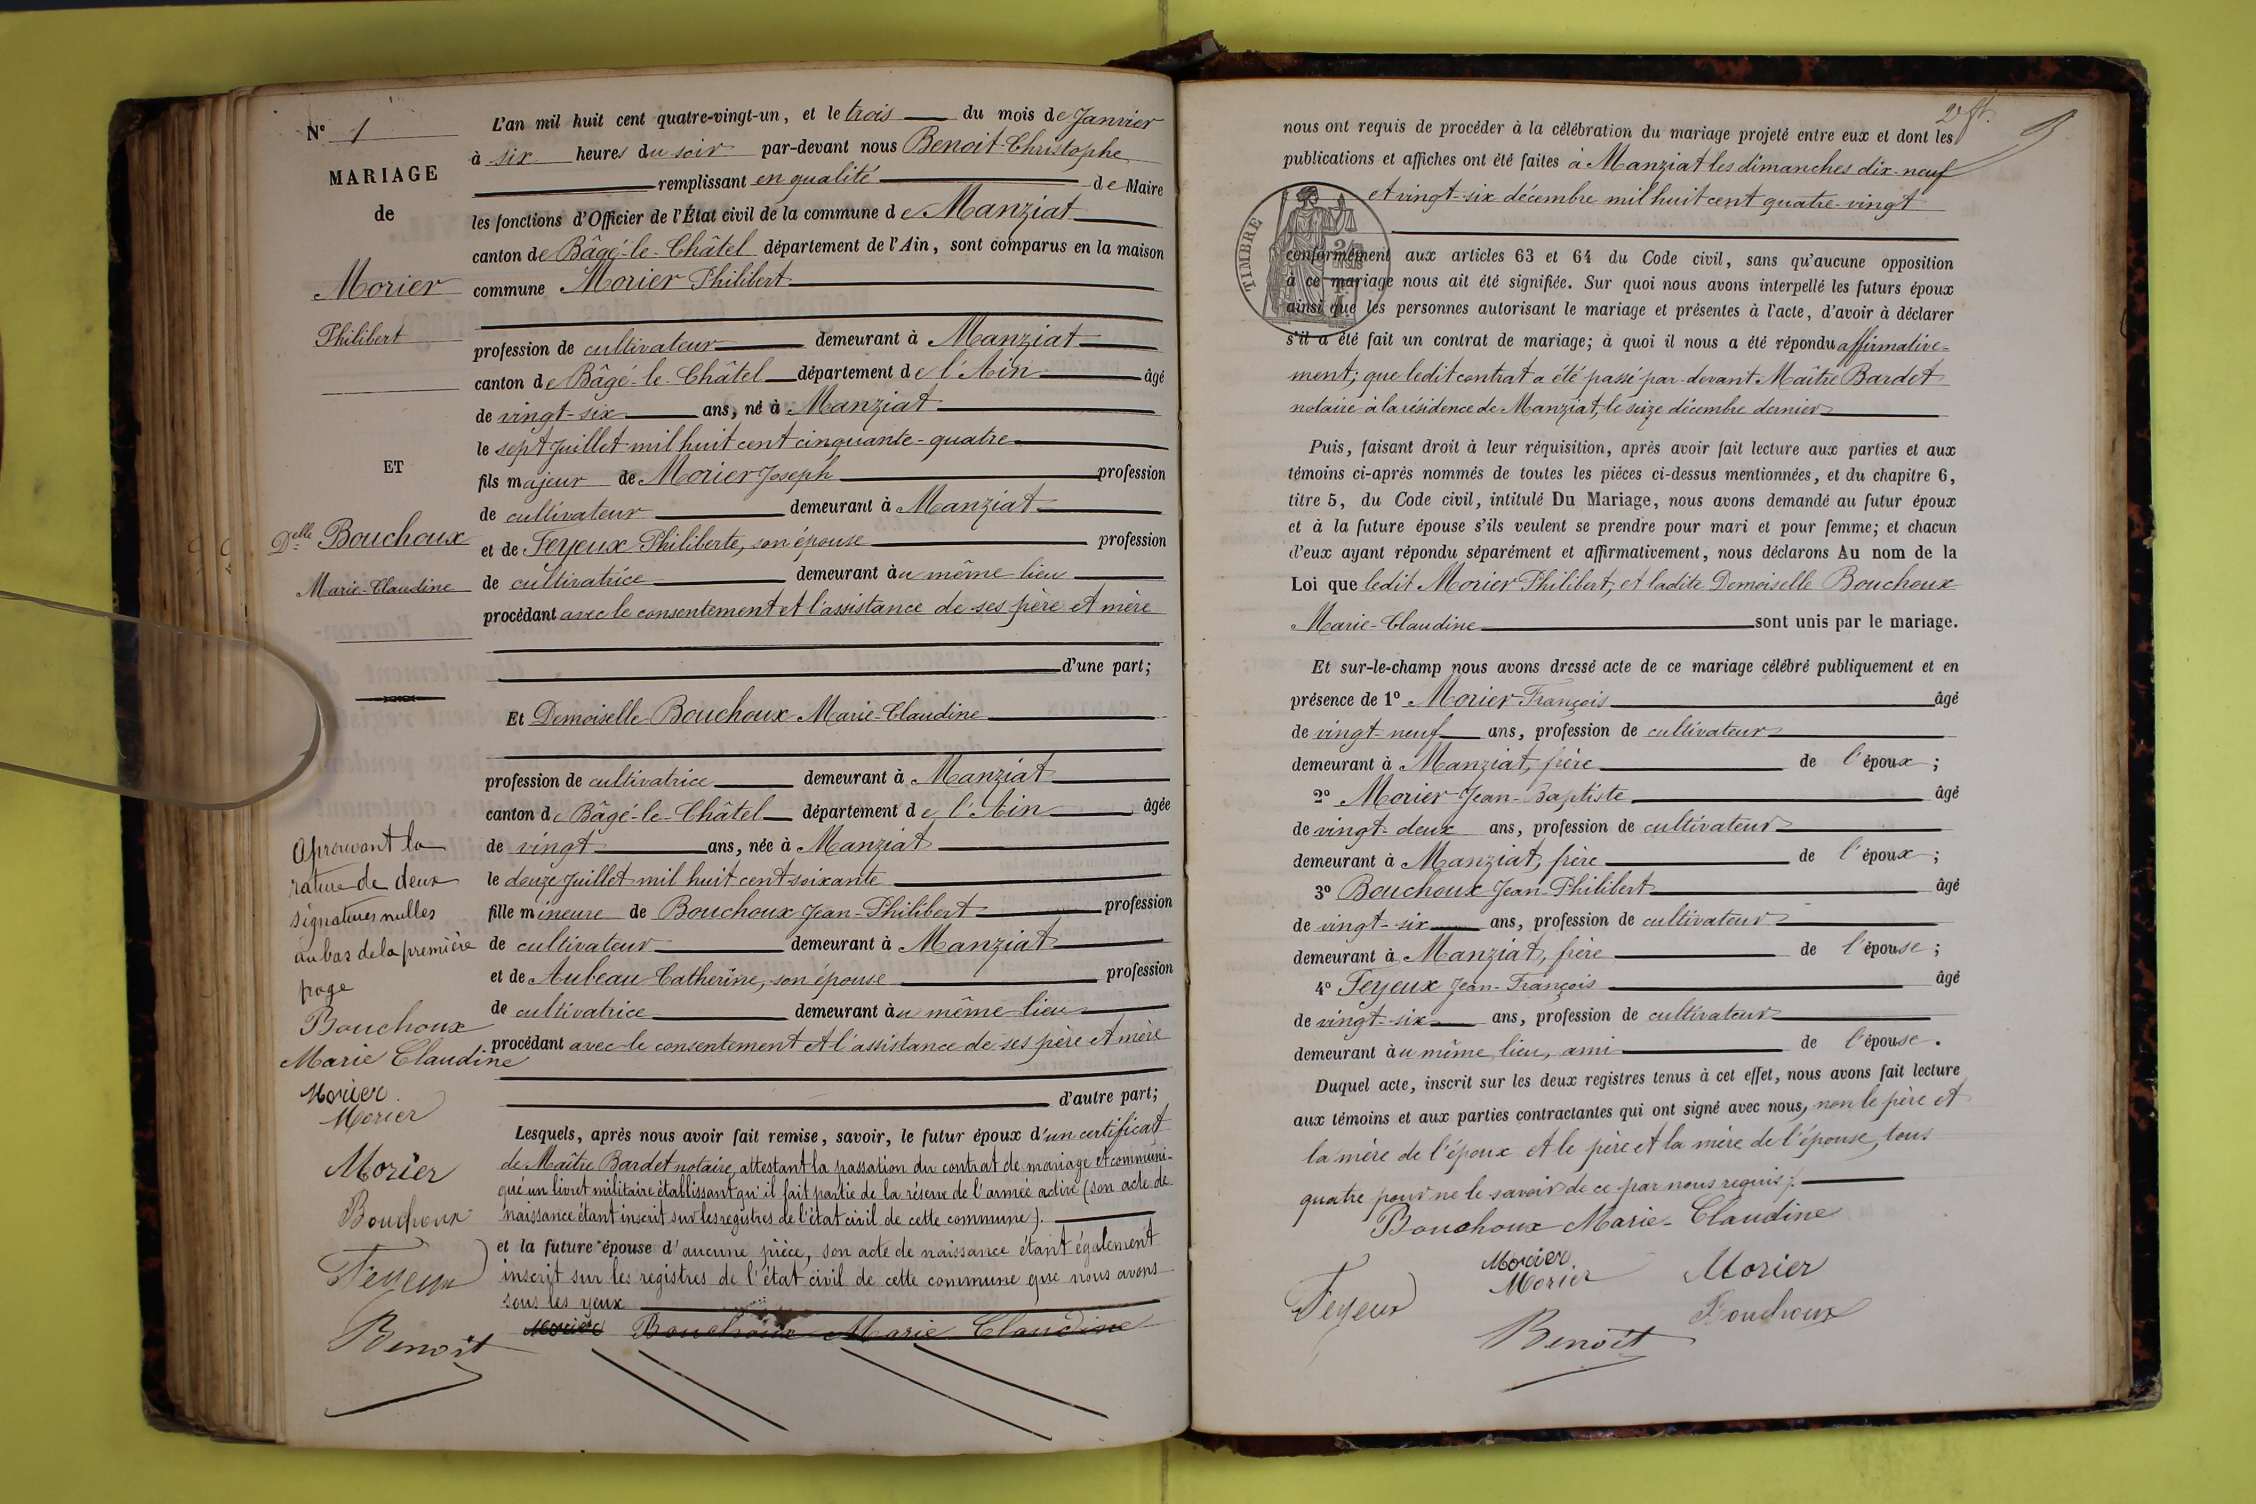 N° 1
MARIAGE
de
Morier
Philibert
ET
Delle Bouchoux
Marie-Claudine
Aprouvant la
rature de deux
signatures nulles
au bas de la première
page
Bouchoux
Marie Claudine
Morier
Morier
Morier
Bouchoux
Feyeux
Benoît
L'an mil huit cent quatre-vingt-un, et le trois du mois de Janvier
à six heures du soir par-devant nous Benoit Christophe
remplissant en qualité de Maire
les fonctions d'Officier de l'État civil de la commune de Manziat
canton de Bâgé-le-Châtel département de l'Ain, sont comparus en la maison
commune Morier Philibert
profession de cultivateur demeurant à Manziat
canton de Bâgé-le-Châtel département de l'Ain âgé
de vingt-six ans, né à Manziat
le sept Juillet mil huit cent cinquante-quatre
fils majeur de Morier Joseph profession
de cultivateur demeurant à Manziat
et de Feyeux Philiberte, son épouse profession
de cultivatrice demeurant au même lieu
procédant avec le consentement et l'assistance de ses père et mère
d'une part;
Et Demoiselle Bouchoux Marie-Claudine
profession de cultivatrice demeurant à Manziat
canton de Bâgé-le-Châtel département de l'Ain âgée
de vingt ans, née à Manziat
le douze Juillet mil huit cent soixante
fille mineure de Bouchoux Jean-Philibert profession
de cultivateur demeurant à Manziat
et de Aubeau Catherine, son épouse profession
de cultivatrice demeurant au même lieu
procédant avec le consentement et l'assistance de ses père et mère
d'autre part;
Lesquels, après nous avoir fait remise, savoir, le futur époux d'un certificat
de Maître Bardet notaire, attestant la passation du contrat de mariage et communi-
qué un livret militaire établissant qu'il fait partie de la réserve de l'armée active (son acte de
naissance étant inscrit sur les registres de l'état civil de cette commune).
et la future épouse d'aucune pièce, son acte de naissance étant également
inscrit sur les registres de l'état civil de cette commune que nous avons
sous les yeux
Morier Bouchoux Marie Claudine
nous ont requis de procéder à la célébration du mariage projeté entre eux et dont les
publications et affiches ont été faites à Manziat les dimanches dix-neuf
et vingt-six décembre mil huit cent quatre-vingt
TIMBRE
conformément aux articles 63 et 64 du Code civil, sans qu'aucune opposition
à ce mariage nous ait été signifiée. Sur quoi nous avons interpellé les futurs époux
ainsi que les personnes autorisant le mariage et présentes à l'acte, d'avoir à déclarer
s'il a été fait un contrat de mariage; à quoi il nous a été répondu affirmative-
ment; que ledit contrat a été passé par-devant Maître Bardet
notaire à la résidence de Manziat, le seize décembre dernier
Puis, faisant droit à leur réquisition, après avoir fait lecture aux parties et aux
témoins ci-après nommés de toutes les pièces ci-dessus mentionnées, et du chapitre 6,
titre 5, du Code civil, intitulé Du Mariage, nous avons demandé au futur époux
et à la future épouse s'ils veulent se prendre pour mari et pour femme; et chacun
d'eux ayant répondu séparément et affirmativement, nous déclarons Au nom de la
Loi que ledit Morier Philibert, et ladite Demoiselle Bouchoux
Marie-Claudine sont unis par le mariage.
Et sur-le-champ nous avons dressé acte de ce mariage célébré publiquement et en
présence de 1° Morier François âgé
de vingt-neuf ans, profession de cultivateur
demeurant à Manziat, frère de l'époux ;
2° Morier Jean-Baptiste âgé
de vingt-deux ans, profession de cultivateur
demeurant à Manziat, frère de l'époux ;
3° Bouchoux Jean-Philibert âgé
de vingt-six ans, profession de cultivateur
demeurant à Manziat, frère de l'épouse ;
4° Feyeux Jean-François âgé
de vingt-six ans, profession de cultivateur
demeurant au même lieu, ami de l'épouse.
Duquel acte, inscrit sur les deux registres tenus à cet effet, nous avons fait lecture
aux témoins et aux parties contractantes qui ont signé avec nous, non le père et
la mère de l'époux et le père et la mère de l'épouse, tous
quatre pour ne le savoir de ce par nous requis.
Bouchoux Marie-Claudine
Morier
Morier Morier
Feyeux Bouchoux
Benoît